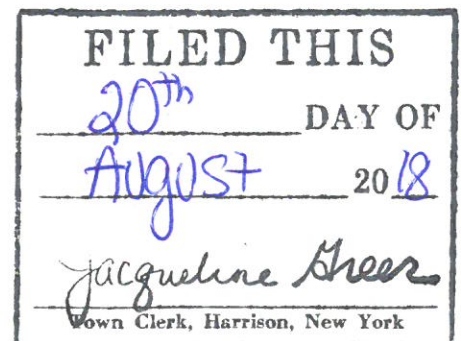 FILED THIS
20th DAY OF
AUGUST 2018
Jacqueline Greer
Town Clerk, Harrison, New York